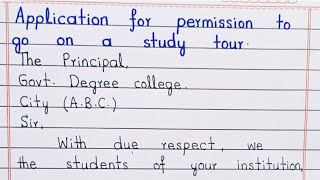 Application for permission to
go on a study tour.
The Principal,
Govt. Degree college.
City (A.B.C.)
Sir,
With due respect, we
the students of your institution,